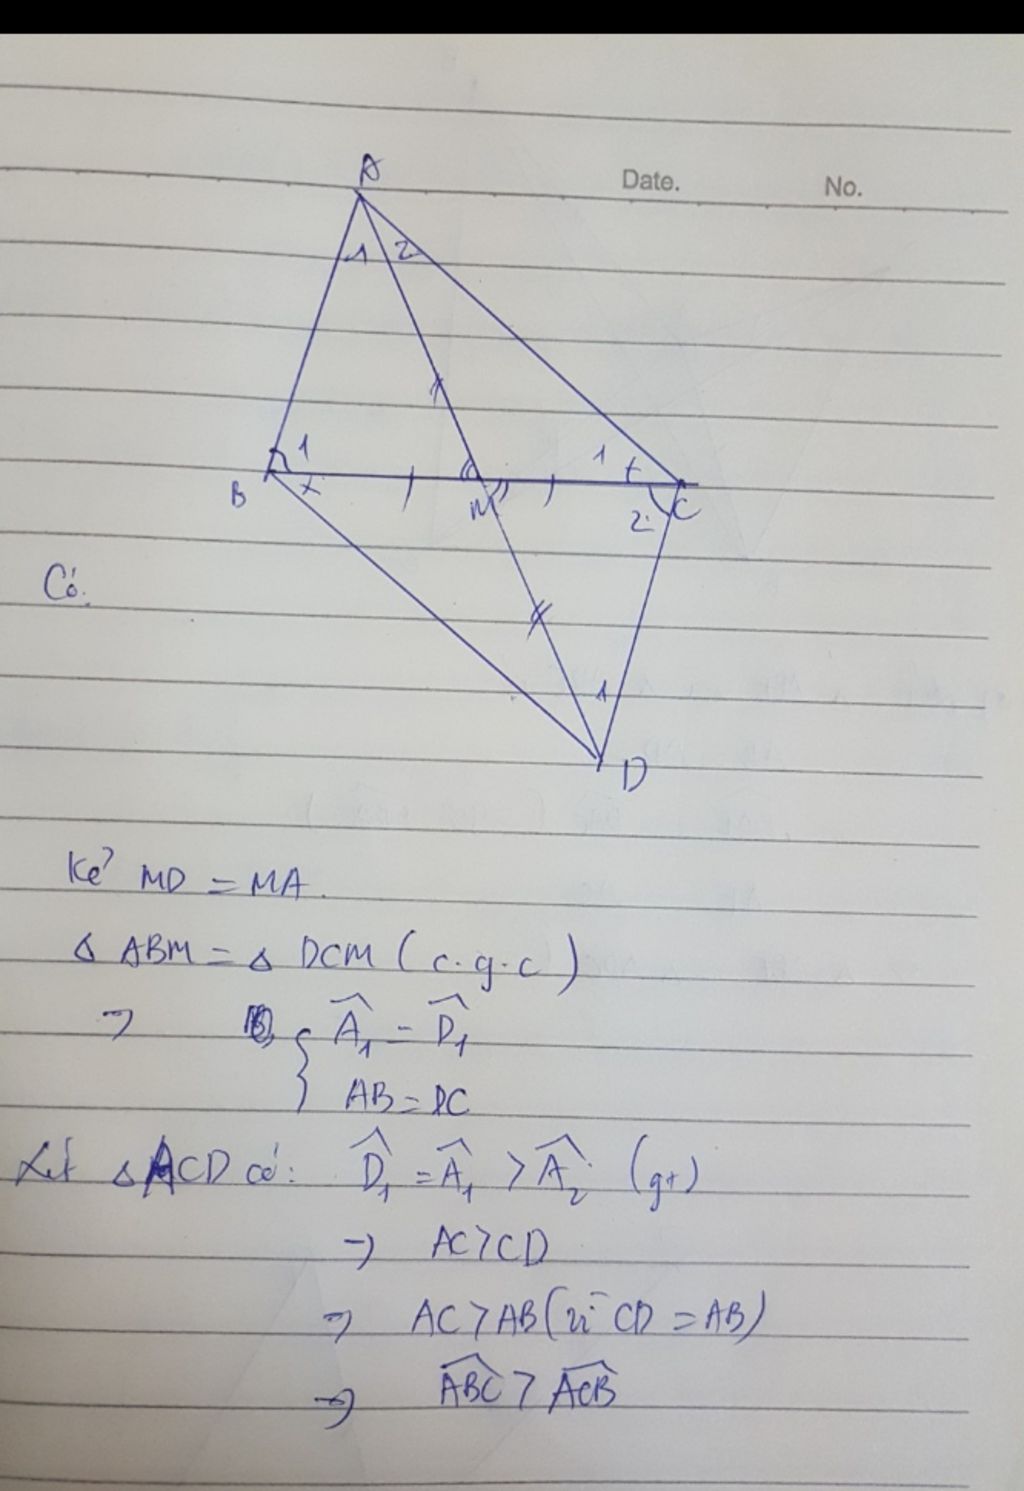 Date. No.
A
1 2
1 1
B x M 2 C
Có.
1
D
Kẻ MD = MA.
Δ ABM = Δ DCM (c.g.c)
⇒ { Â₁ = D̂₁
AB = DC
Xét Δ ACD có: D̂₁ = Â₁ > Â₂ (gt)
→ AC > CD
⇒ AC > AB (vì CD = AB)
⇒ \widehat{ABC} > \widehat{ACB}